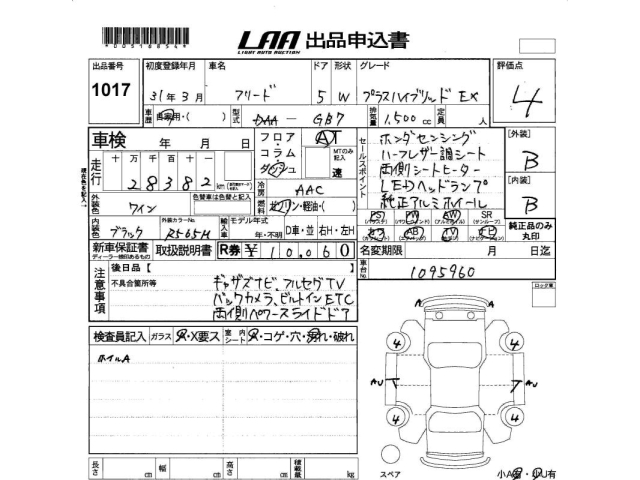 *0051885 4*
LAA 出品申込書
LIGHT AUTO AUCTION
出品番号 初度登録年月 車名 ドア 形状 グレード 評価点
1017 31年3月 フリード 5 W プラスハイブリッド EX 4
車歴 自家用・( ) 型式 DAA - GB7 排気量 1,500 cc 定員 人
車検 年 月 日
フロア・コラム・ダッシュ AT MTのみ記入 速
セールスポイント
ホンダセンシング
ハーフレザー調シート
両側シートヒーター
LEDヘッドランプ
純正アルミホイール
[外装] B
[内装] B
走行 十 万 千 百 十 一
2 8 3 8 2 km
冷房 AAC
燃料 ガソリン・軽油・( )
外装色 ワイン 色替車は元色と記入
内装色 ブラック 外装カラーNo. R565M
輸入車 モデル年式 年・不明 D車・並 右H・左H
PS PW AW SR
(パワステ) (パワーウィンドウ) (アルミホイール) (サンルーフ)
カワ AB TV ナビ
純正品のみ丸印
新車保証書 取扱説明書 R券 ¥ 10,060
ディーラー捺印あるもの
名変期限 月 日
車台No. 1095960
注意事項
後日品【 】
不具合箇所等
ギャザズナビ、フルセグTV
バックカメラ、ビルトインETC
両側パワースライドドア
検査員記入 ガラス A・X要ス 室内シート A・コゲ・穴・汚れ・破れ
ホイルA
ロック有
A A
4 4
AU AU
4 4
長さ cm 幅 cm 高さ cm 積載量 kg
スペア
小A有・小U有